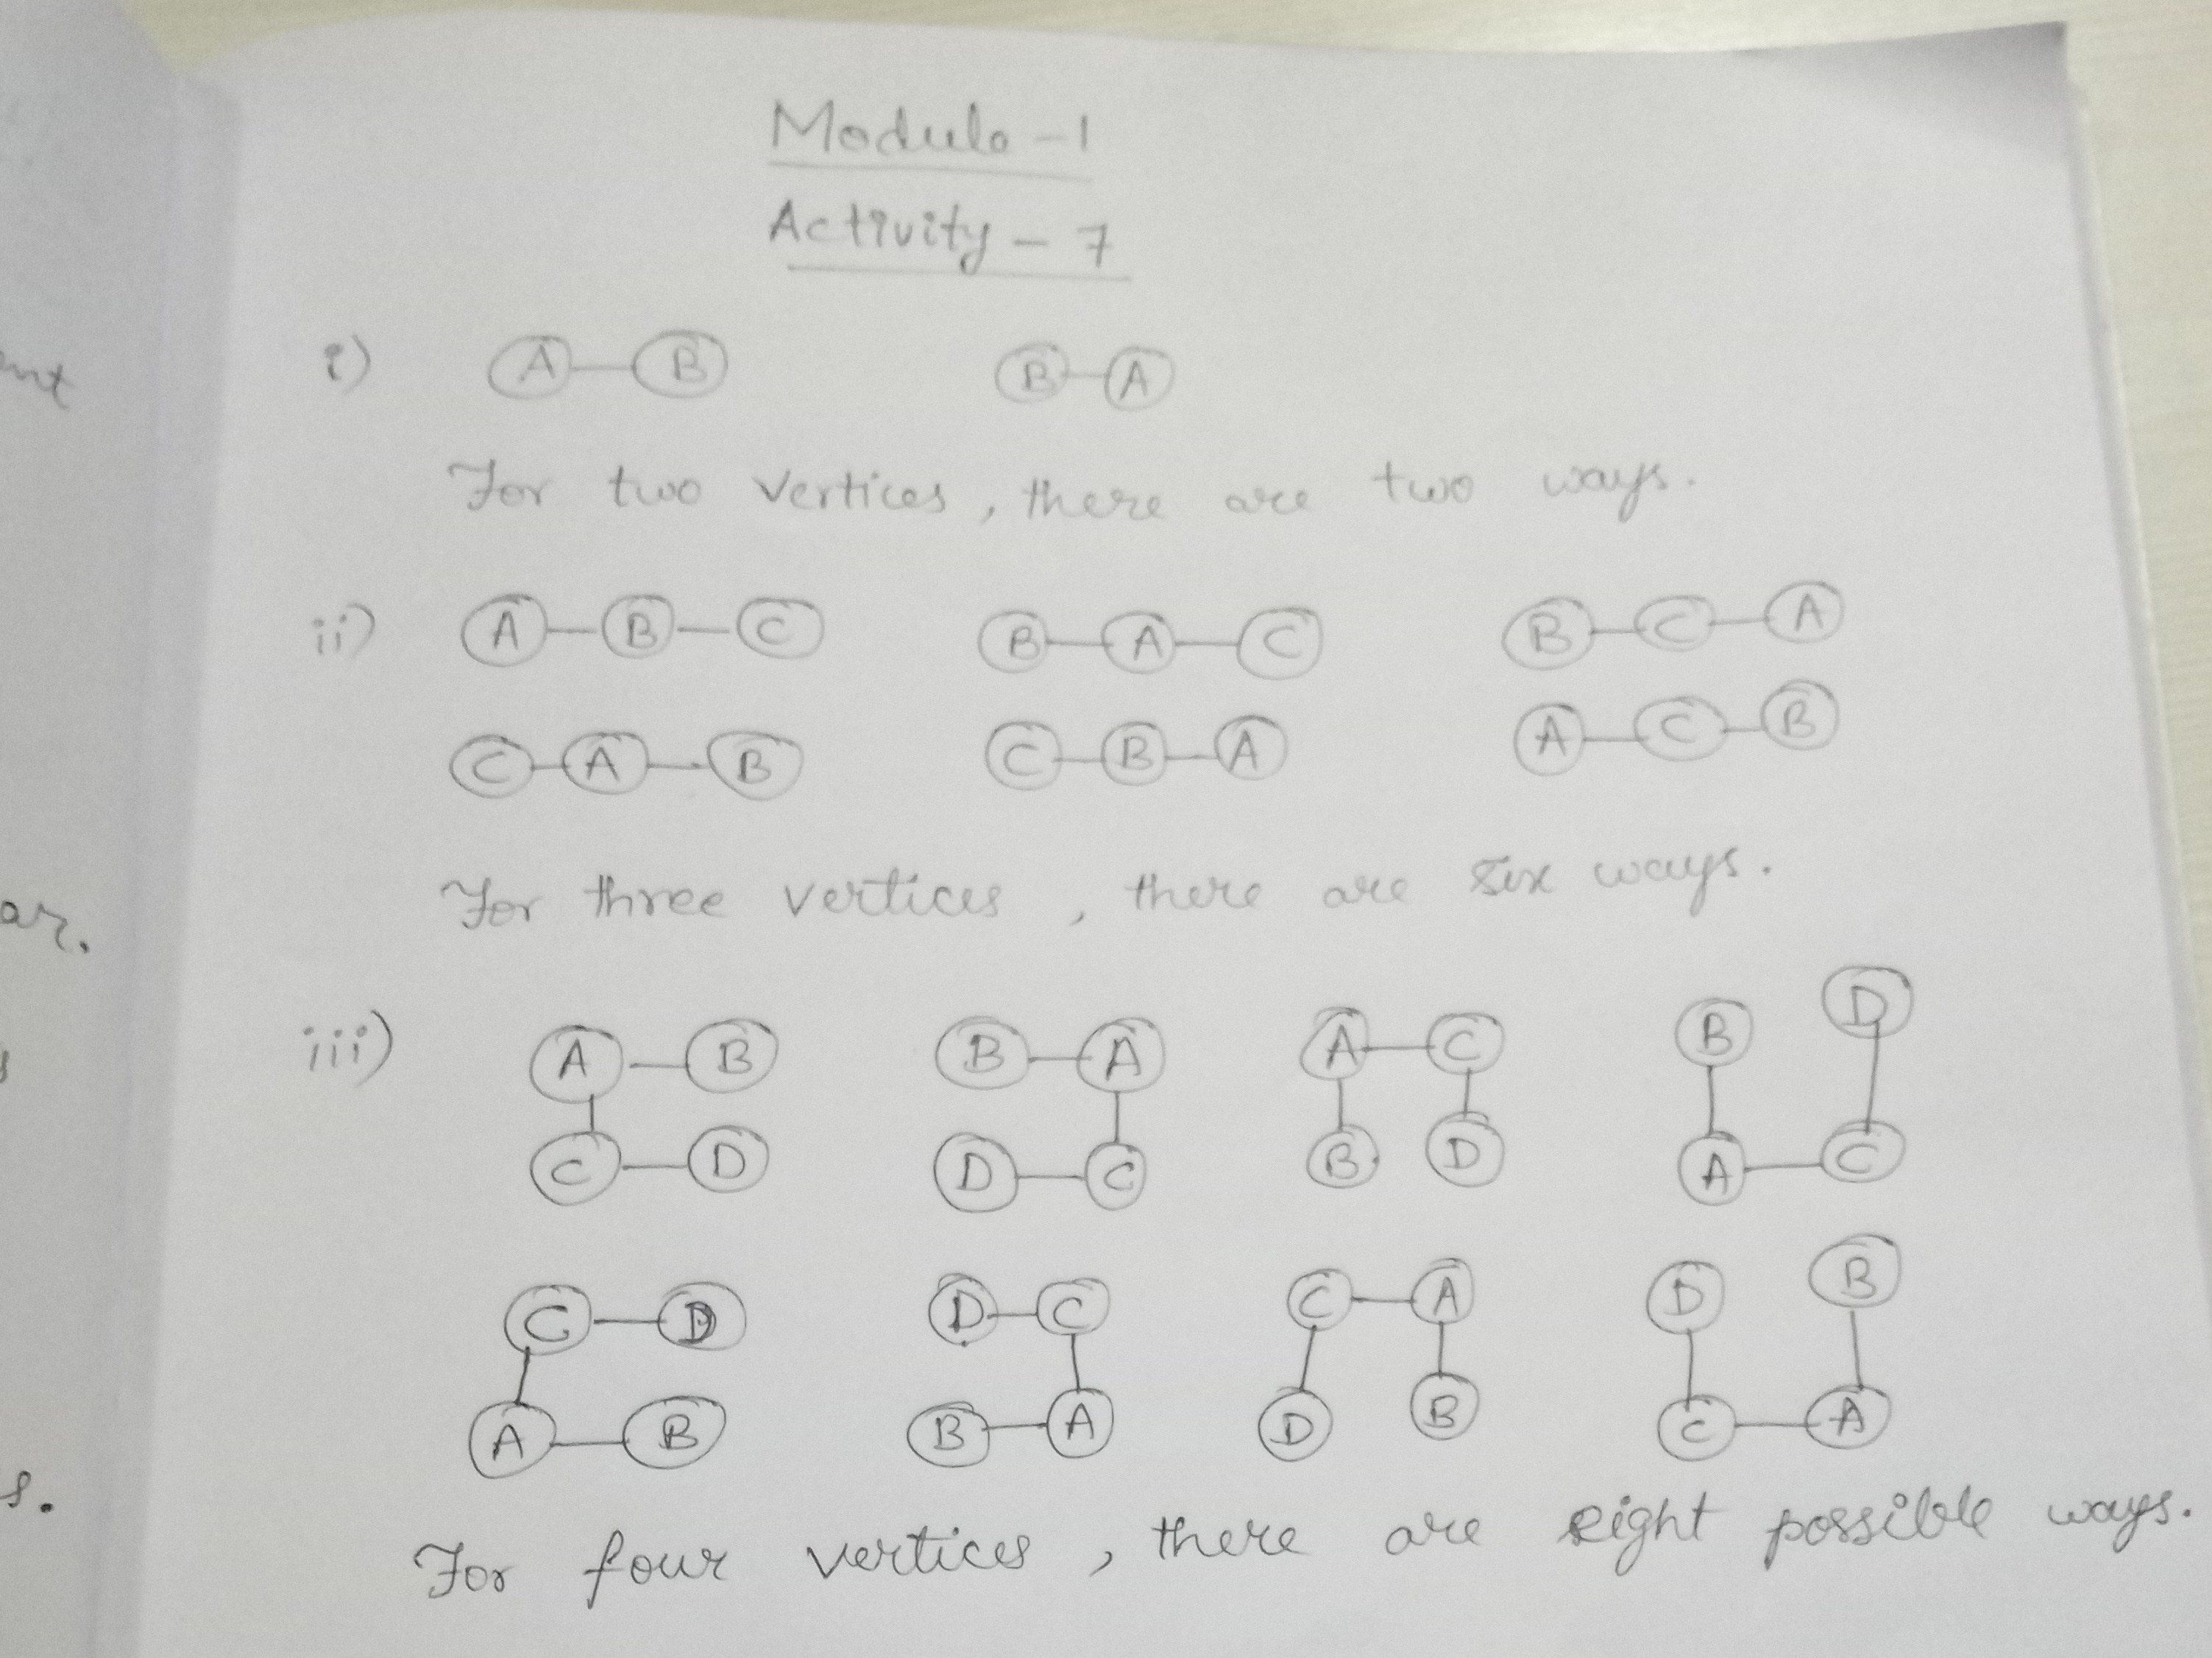 Module - 1
Activity - 7
i) A B B A
For two vertices, there are two ways.
ii) A B C B A C B C A
C A B C B A A C B
For three vertices, there are six ways.
iii) A B B A A C B D
C D D C B D A C
C D D C C A D B
A B B A D B C A
For four vertices, there are eight possible ways.
ar.
s.